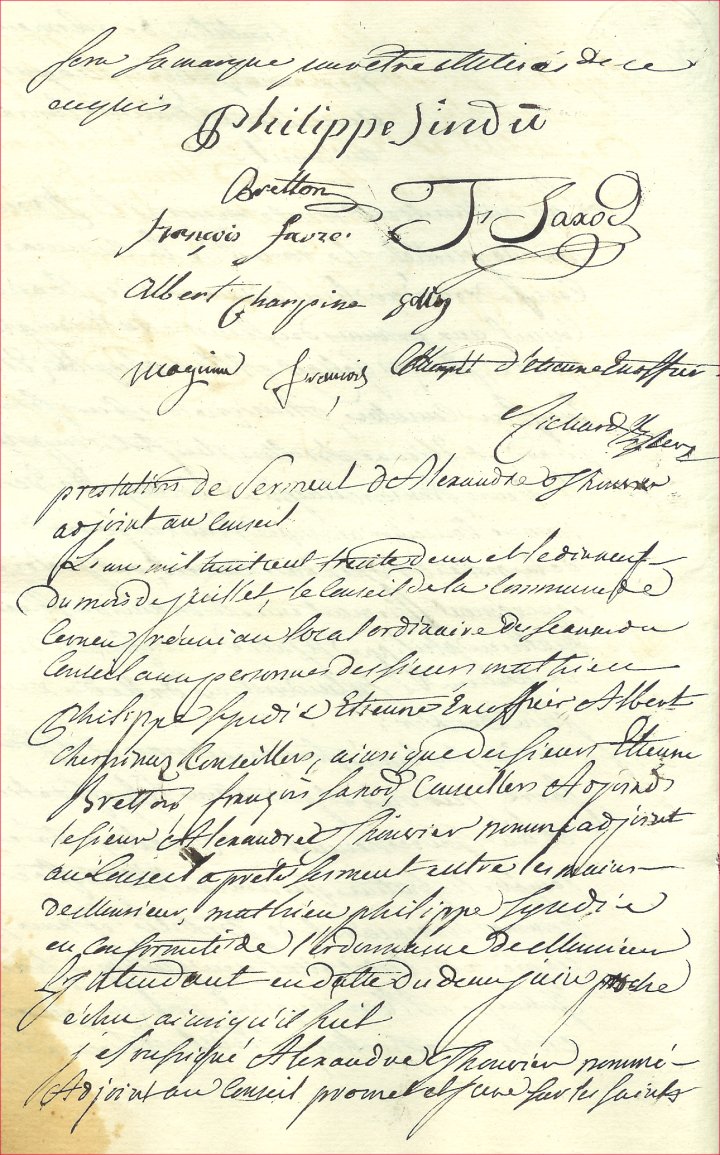 fera sa marque pour être illitérés de ce
enquis
Philippe Sindic
Bretton
françois favre
Fs Saxod
Albert Charpine
françois
d'Etienne Encoffier
Richard
prestation de Serment d'Alexandre
adjoint au Conseil
L'an mil huit cent trente deux et le dix neuf
du mois de juillet, le Conseil de la Commune de
Cernex réuni au local ordinaire des séances du
Conseil aux personnes des sieurs mathieu
Philippe Syndic Etienne Encoffier Albert
Charpinaz Conseillers, ainsi que des sieurs Etienne
Bretton françois Saxod, Conseillers Adjoints
le sieur Alexandre nommé adjoint
au Conseil a prêté serment entre les mains
de Monsieur, mathieu philippe Syndic
en conformité de l'ordonnance de Monsieur
L'Intendant en datte du deux juin proche
échu ainsi qu'il suit
je soussigné Alexandre nommé
Adjoint au Conseil promet et jure sur les Saints